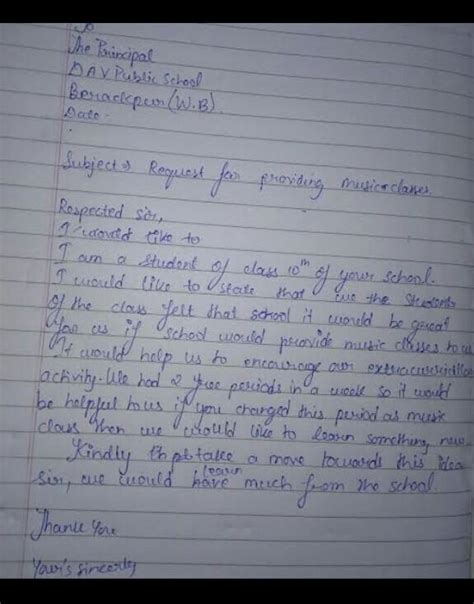 To
The Principal
DAV Public School
Berrackpur (W.B)
Date -
Subject → Request for providing music classes
Respected sir,
I would like to
I am a student of class 10th of your school.
I would like to state that we the students
of the class felt that school it would be great
for us if school would provide music classes to us
It would help us to encourage our extracurricular
activity. We had 2 free periods in a week so it would
be helpful to us if you changed this period as music
class then we would like to learn something new.
Kindly take a move towards this idea
sir, we would learn have much from the school.
Thank You
Your's sincerely